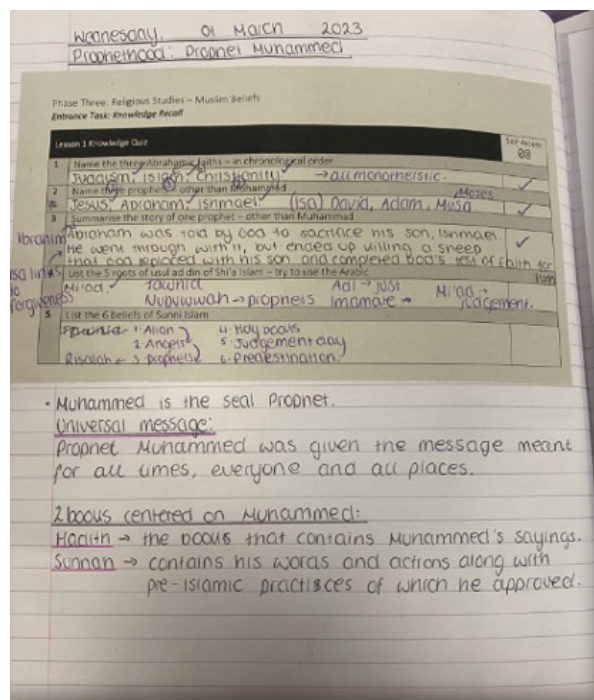 Wednesday, 01 March 2023
Prophethood: Prophet Muhammed
Phase Three: Religious Studies – Muslim Beliefs
Entrance Task: Knowledge Recall
Lesson 1 Knowledge Quiz
Self Assess
08
1 Name the three Abrahamic faiths – in chronological order
Judaism, Islam, Christianity → all monotheistic.
2 Name three prophets – other than Muhammad
Moses
Jesus, Abraham, Ishmael (Isa) David, Adam, Musa
3 Summarise the story of one prophet – other than Muhammad
Ibrahim
Abraham was told by God to sacrifice his son, Ishmael.
He went through with it, but ended up killing a sheep
that God replaced with his son and completed God's test of faith for
him
Isa links
to
forgiveness
List the 5 roots of usul ad din of Shi'a Islam – try to use the Arabic
Mi'ad Tawhid Adl → just Mi'ad →
Nubuwwah → prophets Imamate → judgement.
5 List the 6 beliefs of Sunni Islam
Tawhid 1. Allah 4. Holy books
2. Angels 5. Judgement day
Risalah ← 3. Prophets 6. Predestination.
• Muhammed is the seal Prophet.
Universal message:
Prophet Muhammed was given the message meant
for all times, everyone and all places.
2 books centered on Muhammed:
Hadith → the books that contains Muhammed's sayings.
Sunnah → contains his words and actions along with
pre-Islamic practisces of which he approved.